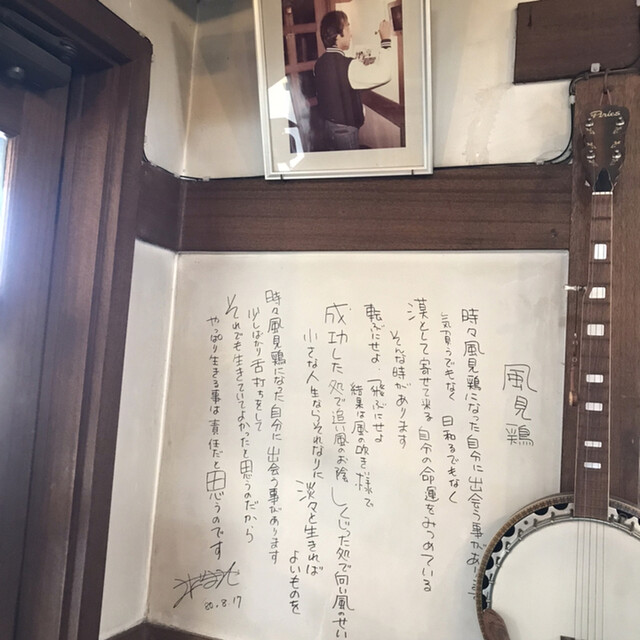 風見鶏
時々風見鶏になった自分に出会う事があり
気負うでもなく 日和るでもなく
漠として寄せて来る 自分の命運をみつめている
そんな時があります
転ぶにせよ 飛ぶにせよ
結果は風の吹き様で
成功した処で追い風のお陰 しくじった処で向い風のせい
小さな人生ならそれなりに 淡々と生きれば
よいものを
時々風見鶏になった自分に出会う事があります
少しばかり舌打ちをして
それでも生きていてよかったと思うのだから
やっぱり生きる事は責任だと思うのです
80.8.17